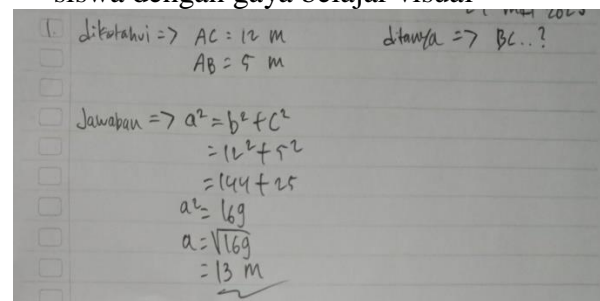 siswa dengan gaya belajar visual
1. diketahui => AC = 12 m ditanya => BC..?
AB = 5 m
Jawaban => a² = b² + c²
= 12² + 5²
= 144 + 25
a² = 169
a = √169
= 13 m